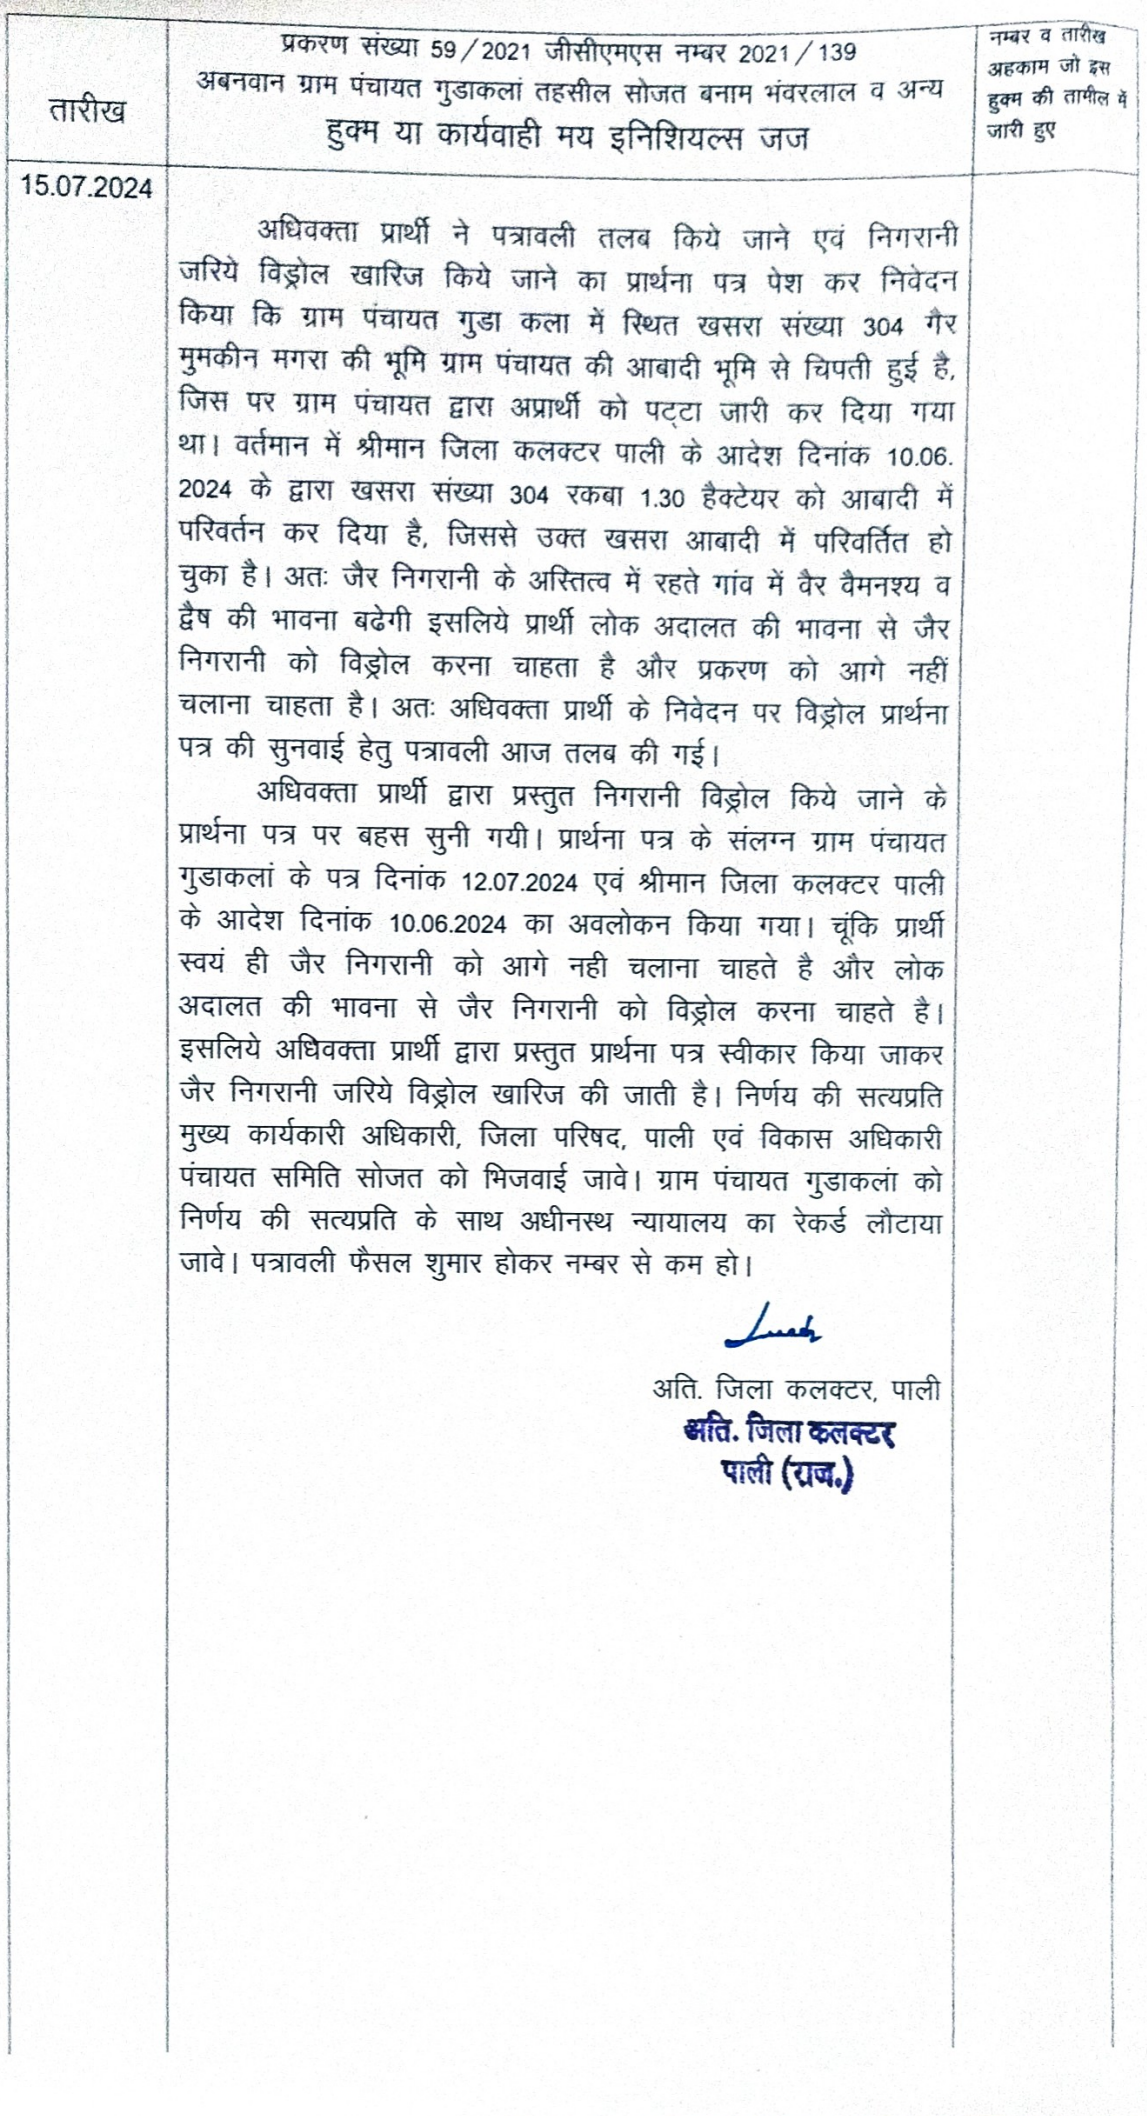 प्रकरण संख्या 59/2021 जीसीएमएस नम्बर 2021/139
अबनवान ग्राम पंचायत गुडाकलां तहसील सोजत बनाम भंवरलाल व अन्य
हुक्म या कार्यवाही मय इनिशियल्स जज
तारीख
नम्बर व तारीख
अहकाम जो इस
हुक्म की तामील में
जारी हुए
15.07.2024
अधिवक्ता प्रार्थी ने पत्रावली तलब किये जाने एवं निगरानी
जरिये विड्रोल खारिज किये जाने का प्रार्थना पत्र पेश कर निवेदन
किया कि ग्राम पंचायत गुडा कला में स्थित खसरा संख्या 304 गैर
मुमकीन मगरा की भूमि ग्राम पंचायत की आबादी भूमि से चिपती हुई है,
जिस पर ग्राम पंचायत द्वारा अप्रार्थी को पट्टा जारी कर दिया गया
था। वर्तमान में श्रीमान जिला कलक्टर पाली के आदेश दिनांक 10.06.
2024 के द्वारा खसरा संख्या 304 रकबा 1.30 हैक्टेयर को आबादी में
परिवर्तन कर दिया है, जिससे उक्त खसरा आबादी में परिवर्तित हो
चुका है। अतः जैर निगरानी के अस्तित्व में रहते गांव में वैर वैमनश्य व
द्वैष की भावना बढेगी इसलिये प्रार्थी लोक अदालत की भावना से जैर
निगरानी को विड्रोल करना चाहता है और प्रकरण को आगे नहीं
चलाना चाहता है। अतः अधिवक्ता प्रार्थी के निवेदन पर विड्रोल प्रार्थना
पत्र की सुनवाई हेतु पत्रावली आज तलब की गई।
अधिवक्ता प्रार्थी द्वारा प्रस्तुत निगरानी विड्रोल किये जाने के
प्रार्थना पत्र पर बहस सुनी गयी। प्रार्थना पत्र के संलग्न ग्राम पंचायत
गुडाकलां के पत्र दिनांक 12.07.2024 एवं श्रीमान जिला कलक्टर पाली
के आदेश दिनांक 10.06.2024 का अवलोकन किया गया। चूंकि प्रार्थी
स्वयं ही जैर निगरानी को आगे नही चलाना चाहते है और लोक
अदालत की भावना से जैर निगरानी को विड्रोल करना चाहते है।
इसलिये अधिवक्ता प्रार्थी द्वारा प्रस्तुत प्रार्थना पत्र स्वीकार किया जाकर
जैर निगरानी जरिये विड्रोल खारिज की जाती है। निर्णय की सत्यप्रति
मुख्य कार्यकारी अधिकारी, जिला परिषद, पाली एवं विकास अधिकारी
पंचायत समिति सोजत को भिजवाई जावे। ग्राम पंचायत गुडाकलां को
निर्णय की सत्यप्रति के साथ अधीनस्थ न्यायालय का रेकर्ड लौटाया
जावे। पत्रावली फैसल शुमार होकर नम्बर से कम हो।
अति. जिला कलक्टर, पाली
अति. जिला कलक्टर
पाली (राज.)